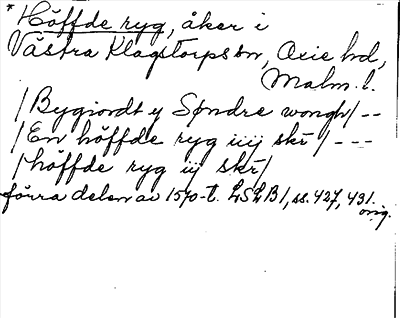 * Höffde ryg, åker i
Västra Klagstorps sn, Oxie hd,
Malm. l.
/Bygiordt y Søndre wongh/ --
/En höffde ryg iiij skr/ ---
/höffde ryg iij skr/
förra delen av 1570-t. LSLB1, ss. 427, 431.
orig.